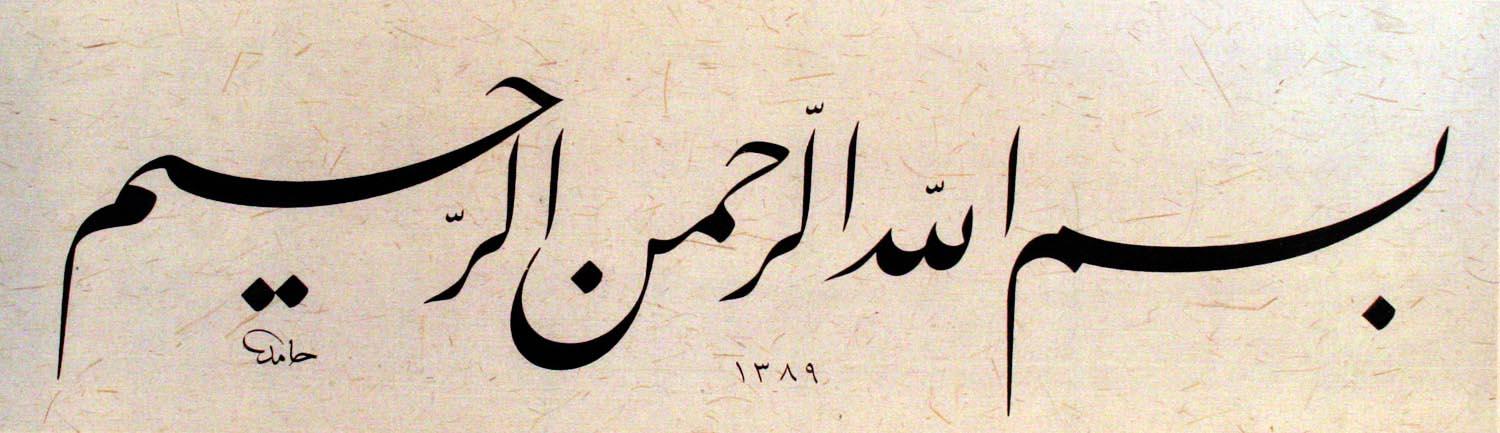 بسم الله الرّحمن الرّحيم
حامد
١٣٨٩